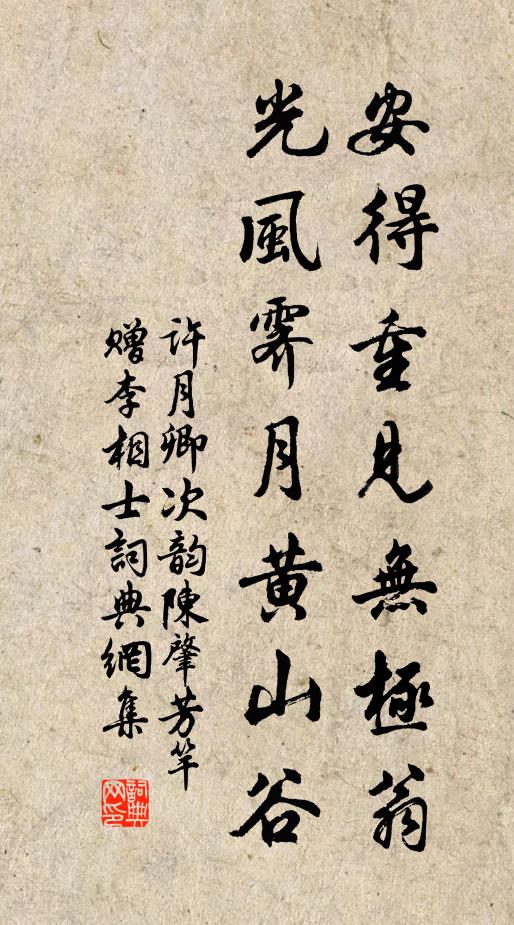 安得重見無極翁
光風霽月黄山谷
許月卿次韵陳肇芳竿
贈李相士詞典網集
詞典網印